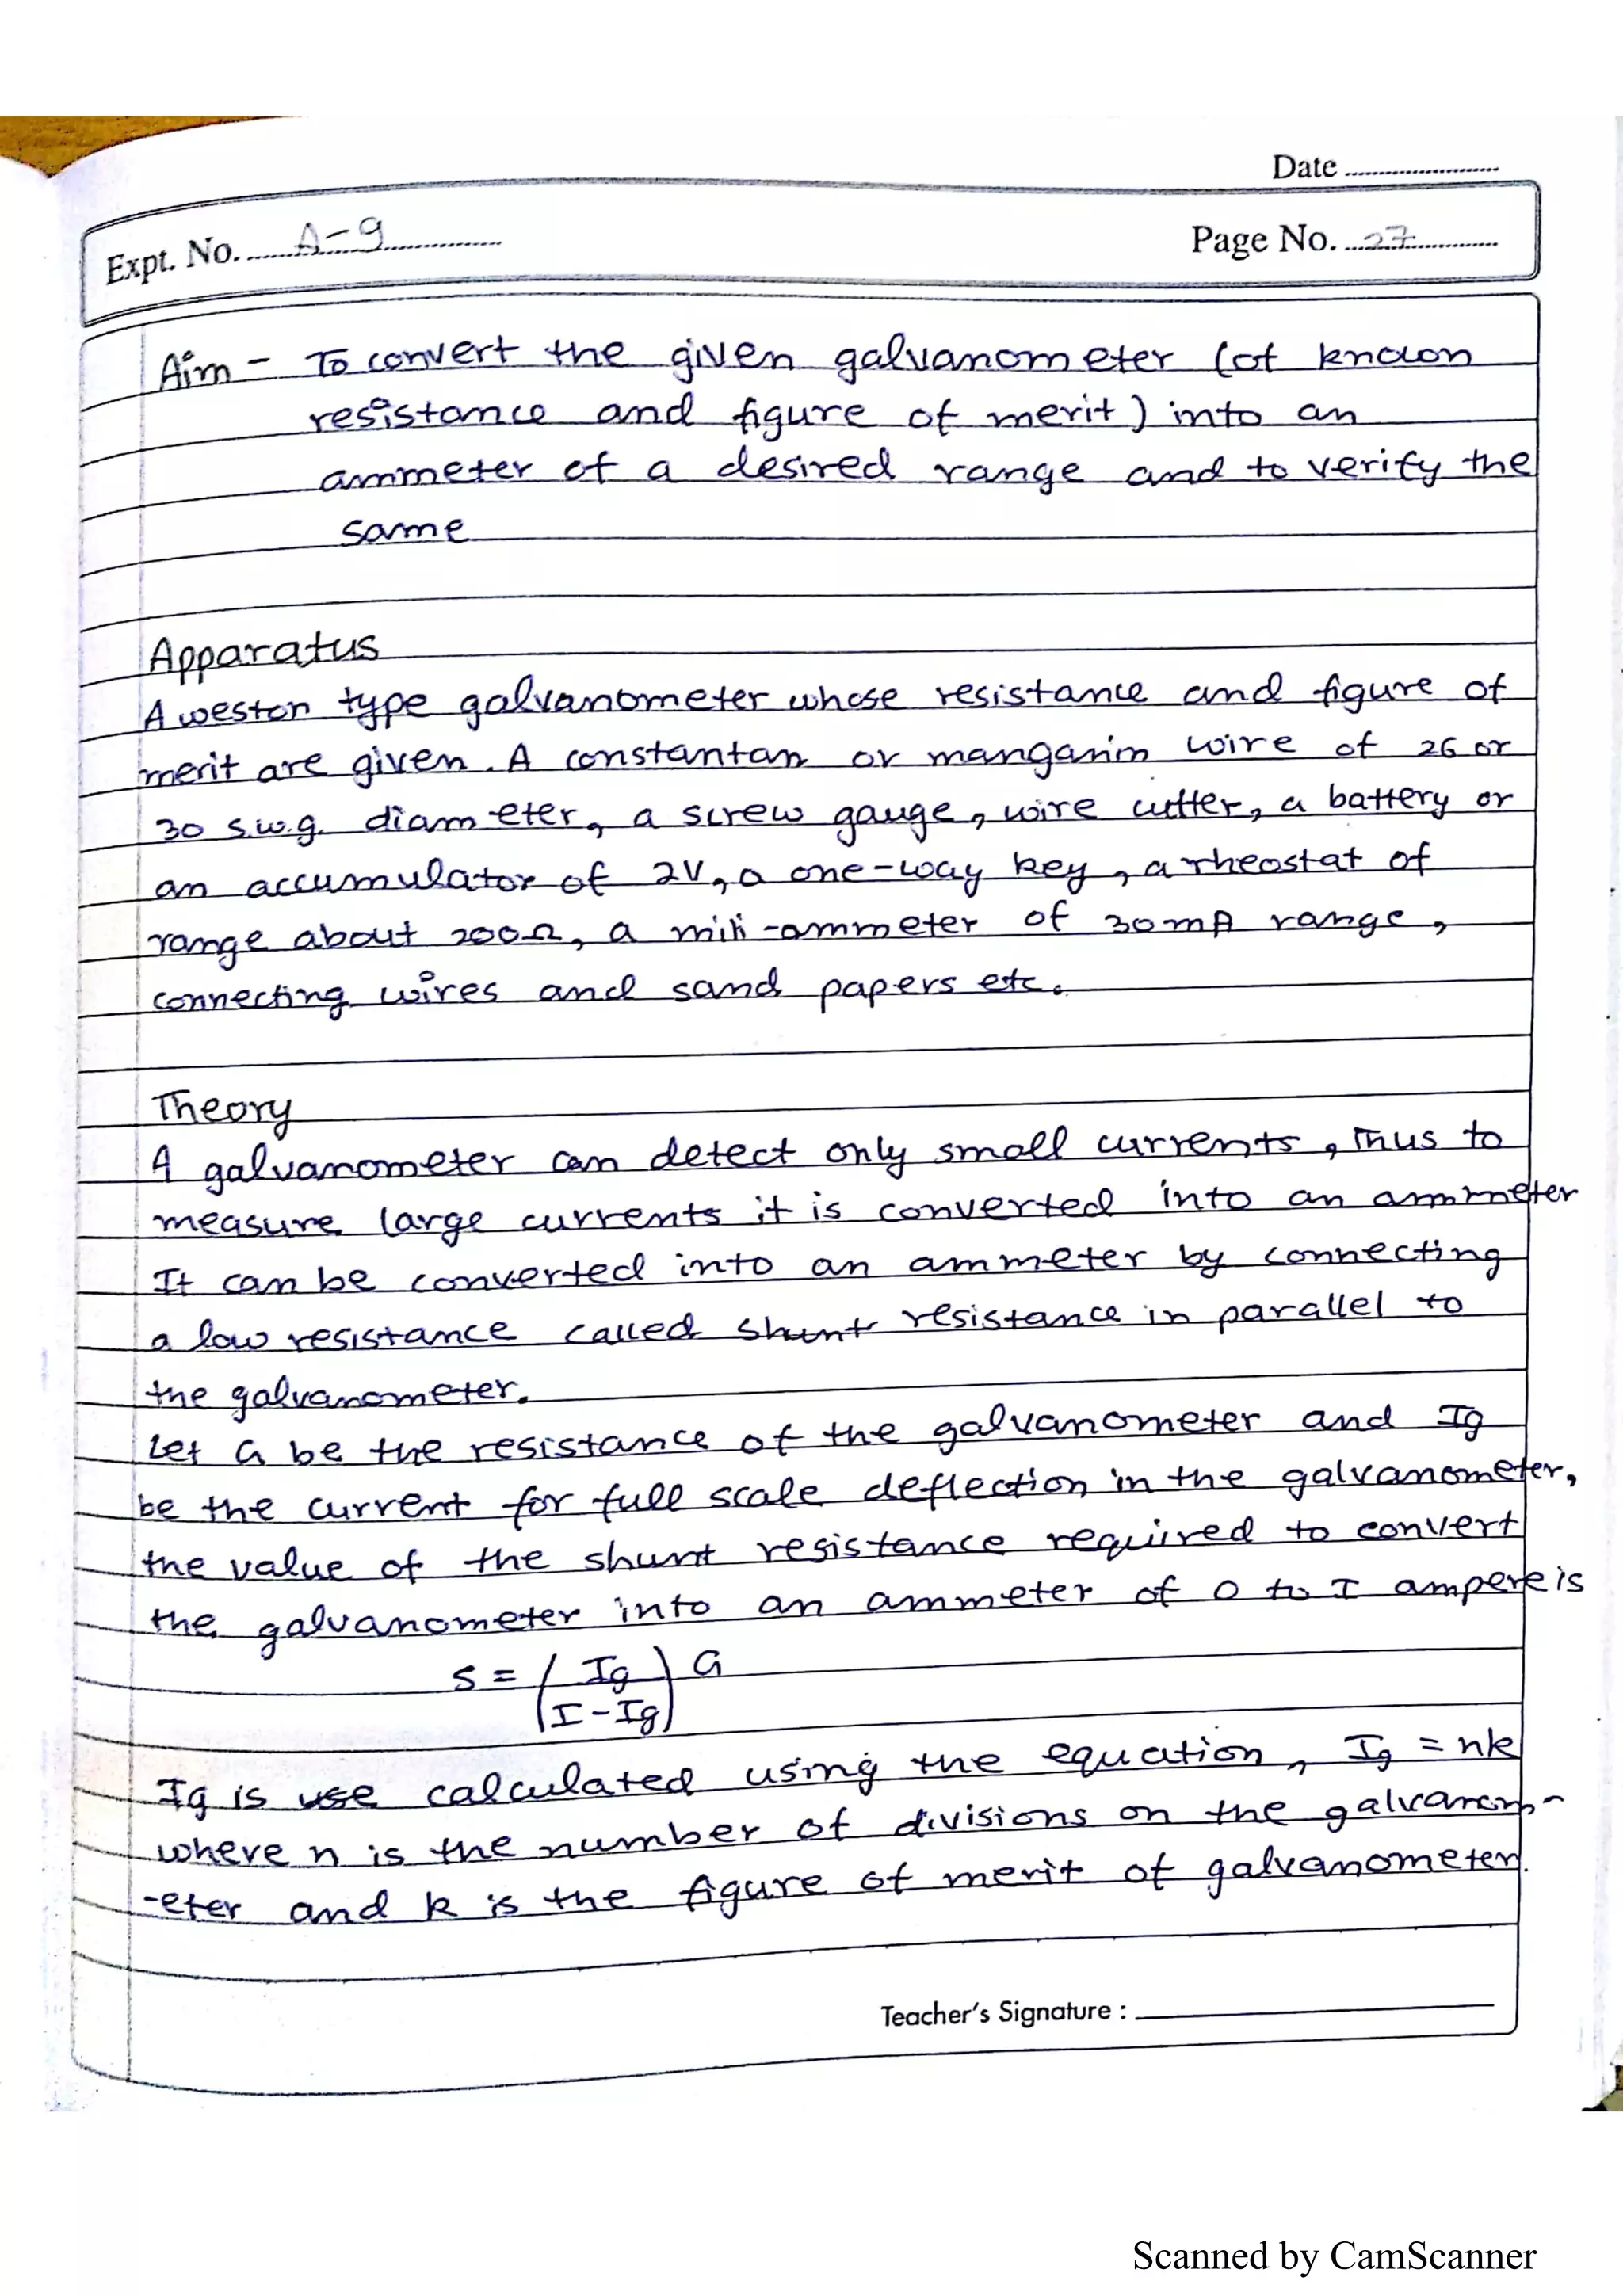 Date
Expt. No. A-9
Page No. 27
Aim - To convert the given galvanometer (of known
resistance and figure of merit) into an
ammeter of a desired range and to verify the
same
Apparatus
A weston type galvanometer whose resistance and figure of
merit are given. A constantan or manganin wire of 26 or
30 s.w.g. diameter, a screw gauge, wire cutter, a battery or
an accumulator of 2V, a one-way key, a rheostat of
range about 200Ω, a mili-ammeter of 30mA range,
connecting wires and sand papers etc.
Theory
A galvanometer can detect only small currents, Thus to
measure large currents it is converted into an ammeter
It can be converted into an ammeter by connecting
a low resistance called shunt resistance in parallel to
the galvanometer.
Let G be the resistance of the galvanometer and Ig
be the current for full scale deflection in the galvanometer,
the value of the shunt resistance required to convert
the galvanometer into an ammeter of 0 to I ampere is
S = (Ig / I - Ig) G
Ig is use calculated using the equation, Ig = nk
where n is the number of divisions on the galvanom-
-eter and k is the figure of merit of galvanometer.
Teacher's Signature :
Scanned by CamScanner